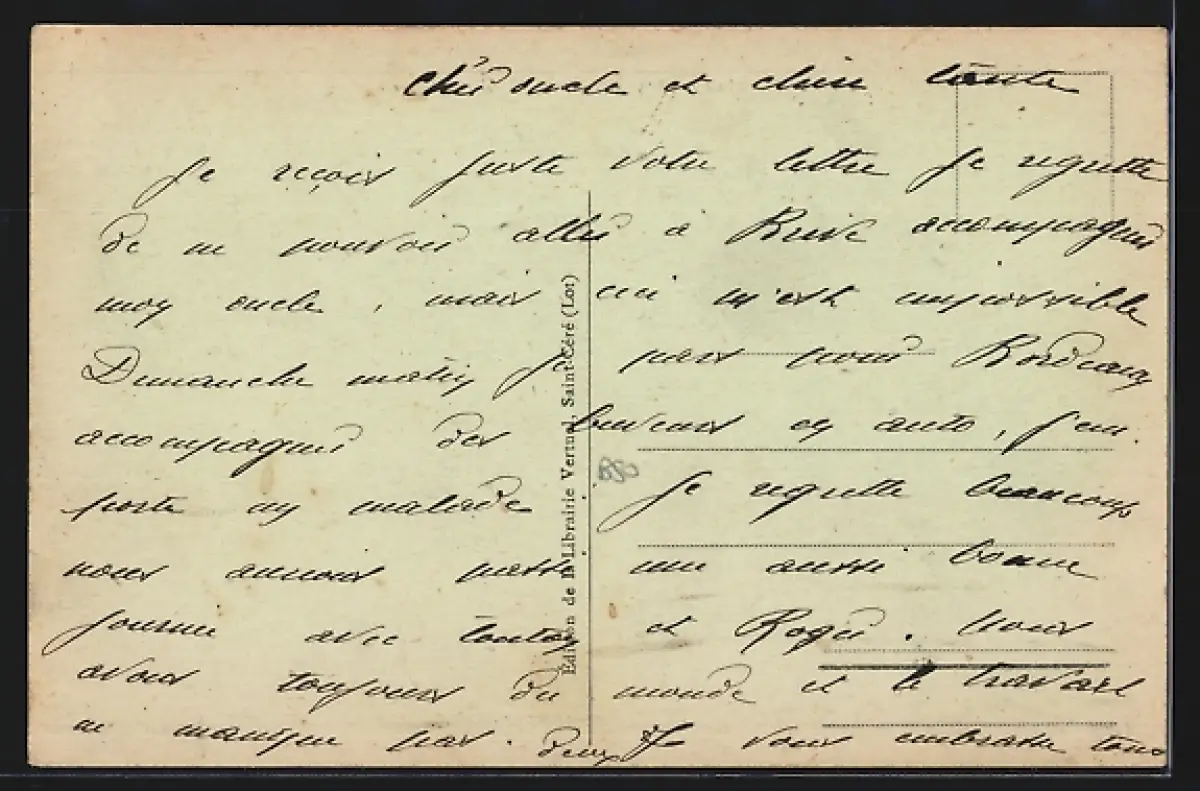 Cher oncle et chère tante
Je reçois juste votre lettre Je regrette
de ne pouvoir aller à Brive accompagner
mon oncle, mais ceci m'est impossible
Dimanche matin Je pars pour Bordeaux
accompagner des en auto, J'em
porte un malade Je regrette beaucoup
nous aurions passé une aussi bonne
journée avec tonton et Roger. nous
avons toujours du monde et le travail
ne manque pas. Je vous embrasse tous
deux
Édition de la Librairie Vertuel, Saint-Céré (Lot)
880